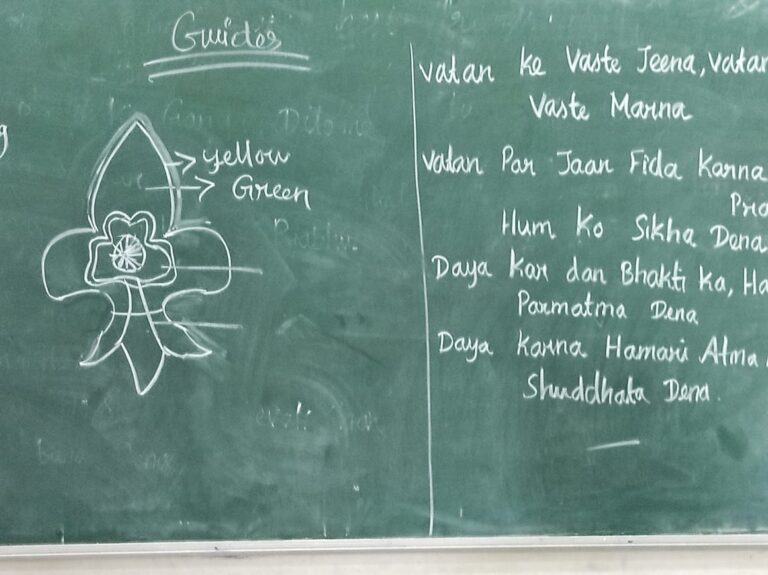 Guides
Yellow
Green
Vatan ke Vaste Jeena, Vatan
Vaste Marna
Vatan Par Jaan Fida Karna
Hum Ko Sikha Dena
Daya Kar dan Bhakti Ka, Ha
Parmatma Dena
Daya Karna Hamari Atma
Shuddhata Dena.